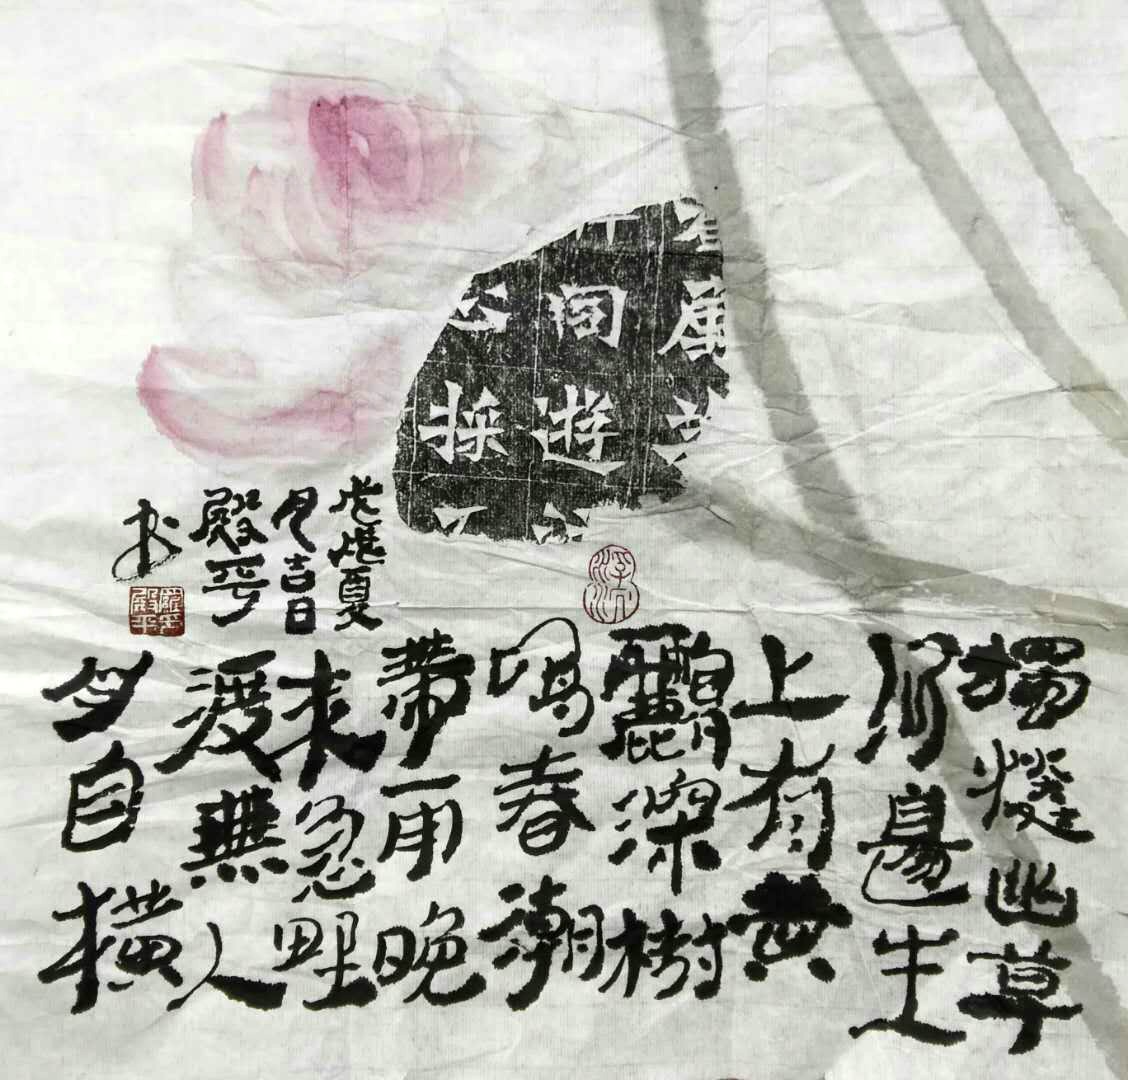 遊
採
獨憐幽草
澗邊生
上有黃
鸝深樹
鳴春潮
帶雨晚
來急野
渡無人
舟自橫
戊戌夏
月吉日
殿平
书
殿平